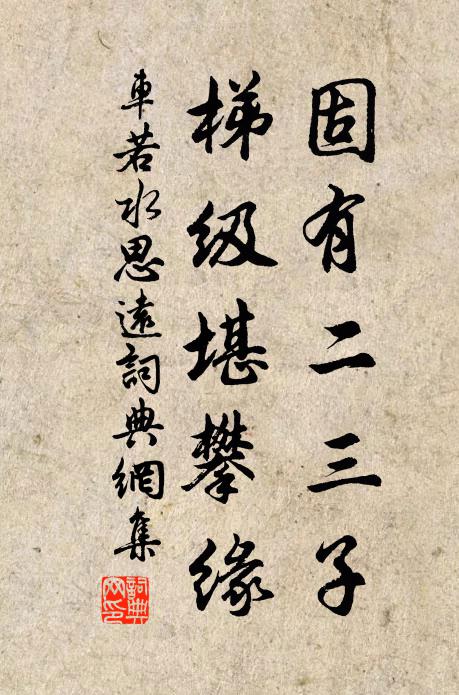 固有二三子
梯级堪攀缘
車若水思遠詞典網集
詞典网印